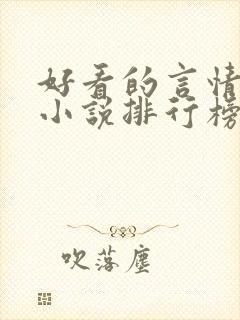 好看的言情
小说排行榜
吹落尘